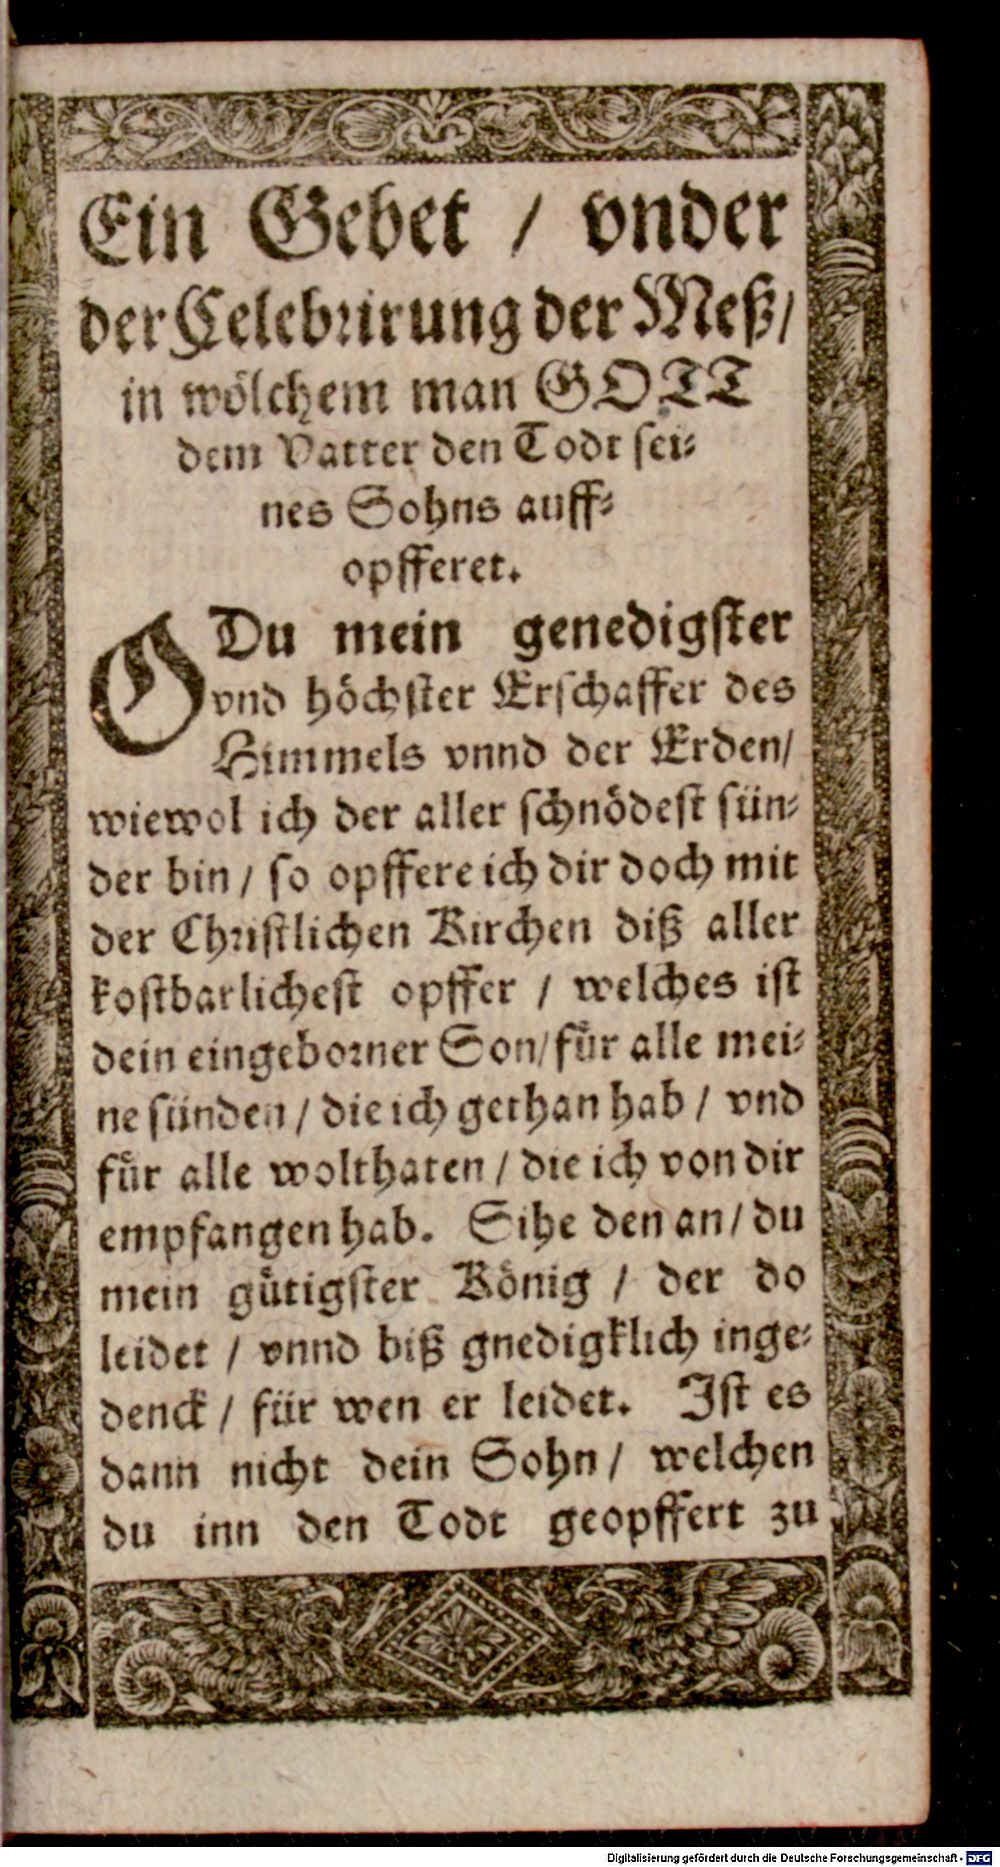 Ein Gebet / vnder
der Celebrirung der Meß /
in wölchem man GOTT
dem Vatter den Todt sei⸗
nes Sohns auff⸗
opfferet.
O Du mein genedigster
vnd höchster Erschaffer des
Himmels vnnd der Erden /
wiewol ich der aller schnödest sün⸗
der bin / so opffere ich dir doch mit
der Christlichen Kirchen diß aller
kostbarlichest opffer / welches ist
dein eingeborner Son / für alle mei⸗
ne sünden / die ich gethan hab / vnd
für alle wolthaten / die ich von dir
empfangen hab. Sihe den an / du
mein gütigster König / der do
leidet / vnnd biß gnedigklich inge⸗
denck / für wen er leidet. Ist es
dann nicht dein Sohn / welchen
du inn den Todt geopffert zu
Digitalisierung gefördert durch die Deutsche Forschungsgemeinschaft - DFG